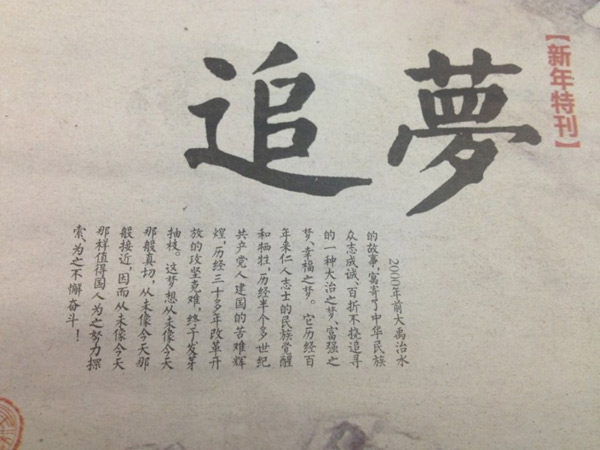 【新年特刊】
追夢
2000年前大禹治水
的故事，寓寄了中华民族
众志成诚、百折不挠追寻
的一种大治之梦、富强之
梦、幸福之梦。它历经百
年来仁人志士的民族觉醒
和牺牲，历经半个多世纪
共产党人建国的苦难辉
煌，历经三十多年改革开
放的攻坚克难，终于发芽
抽枝。这梦想从未像今天
那般真切，从未像今天那
般接近，因而从未像今天
那样值得国人为之努力探
索、为之不懈奋斗！